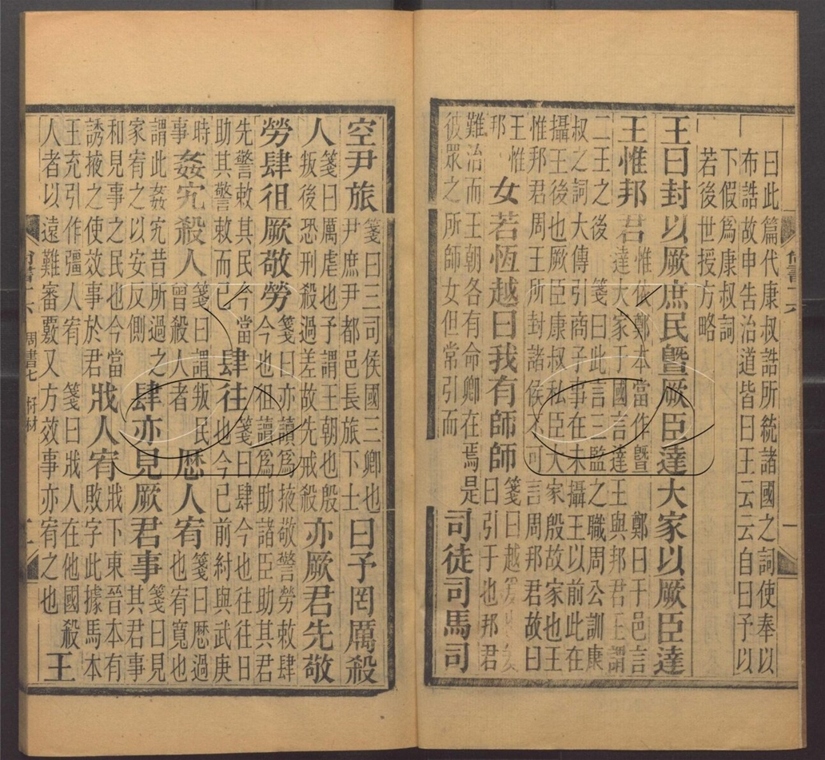 曰此篇代康叔誥所統諸國之詞使奉以
布誥故申告治道皆曰王云云自曰予以
下假爲康叔詞
若後世授方略
王曰封以厥庶民曁厥臣達大家以厥臣達
王惟邦君
惟佐鄭本當作曁 鄭曰于邑言
達大家于國言達王與邦君王謂
二王之後 箋曰此言三監之職周公訓康
叔之詞大傳引商子事在未攝王以前此在
攝王後也厥臣康叔私臣大家殷故家也王
惟邦君周王所封諸侯不可言周邦君故曰
王惟
邦
女若恆越曰我有師師
箋曰越爰
曰引于也邦君
難治而王朝各有命卿在焉是
彼眾之所師女但常引而
司徒司馬司
尚書 六
一
空尹旅
箋曰三司侯國三卿也
尹庶尹都邑長旅下士
曰予罔厲殺
人
箋曰厲虐也予謂王朝也殷
叛後恐刑殺過差故先戒殺
亦厥君先敬
勞肆徂厥敬勞
箋曰亦讀爲掖敬警勞敕肆
今也徂讀爲助諸臣助其君
先警敕其民今當
助其警敕而已
肆往
箋曰肆今也往往日
也今已前紂與武庚
時
事
姦宄殺人
箋曰謂叛民
曾殺人者
歷人宥
箋曰歷過
也宥寬也
謂此姦宄昔所過之
家宥之以安反側
肆亦見厥君事
箋曰見
其君事
和見事之民也今當
誘掖之使效事於君
戕人宥
戕下東晉本有
敗字此據馬本
王充引作彊人宥 箋曰戕人在他國殺
人者以遠難審覈又方效事亦宥之也
王
尚書 六 周書七 梓材
二